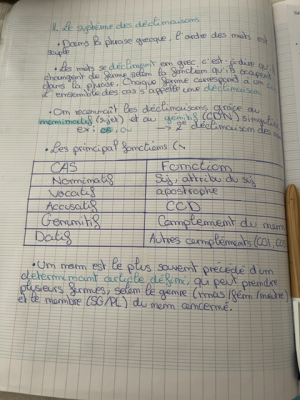 II. Le système des déclinaisons
• Dans la phrase grecque, l'ordre des mots est
souple
• Les mots se déclinent en grec c'est-à-dire qu'ils
changent de forme selon la fonction qu'ils occupent
dans la phrase. Chaque forme correspond à un
L'ensemble des cas s'appelle une déclinaison
• On reconnaît les déclinaisons grâce au
nominatif (sujet) et au génitif (CDN) singulier
ex: os, ou → 2e déclinaison des
• Les principal fonctions (
CAS Fonction
Nominatif Suj, attribu du suj
Vocatif apostrophe
Accusatif COD
Gennitif Complement du nom
Datif Autres compléments (COI, COS
• Un nom est le plus souvent précédé d'un
déterminant article défini, qui peut prendre
plusieurs formes, selon le genre (mas/fém/neutre)
et le nombre (SG/PL) du nom concerné.